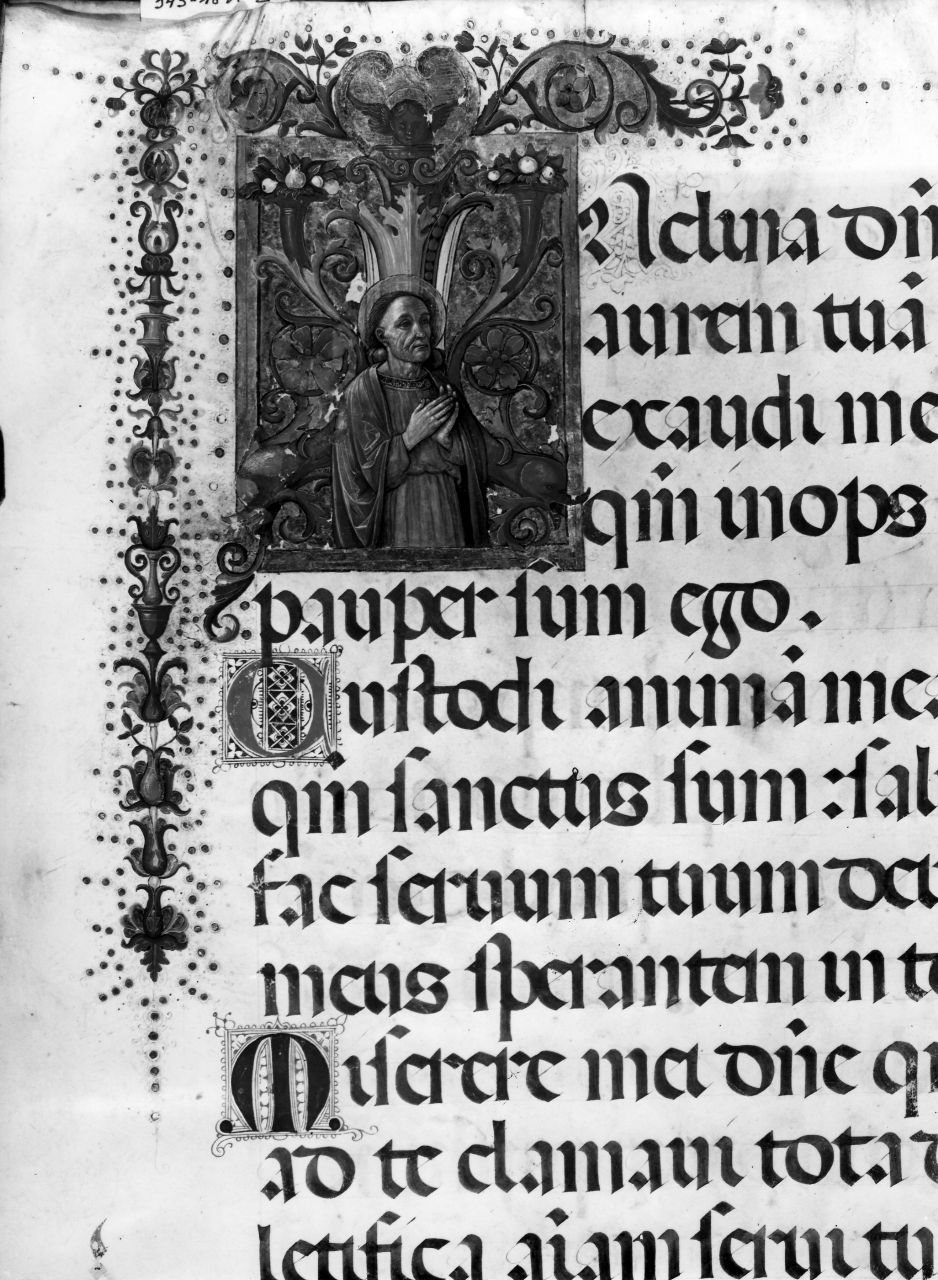 Nclina dn̄
aurem tuā
exaudi me
qm̄ inops
pauper sum ego.
Custodi animā mea
qm sanctus sum: sal
fac seruum tuum deu
meus sperantem in te
Miserere mei dn̄e q
ad te clamaui tota d
letifica aīam serui tu